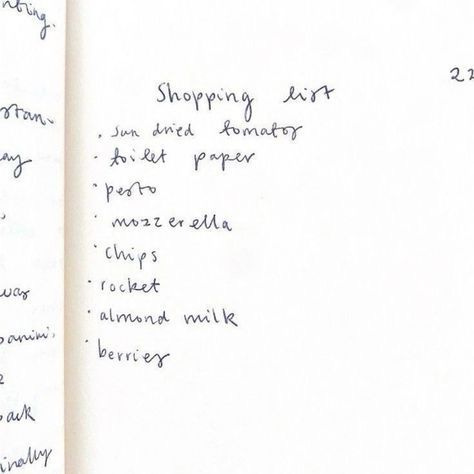 nting.
22
Shopping list
stan.
· sun dried tomatos
· toilet paper
ay
· pesto
· mozzerella
· chips
was
· rocket
· almond milk
panini.
· berries
back
inally